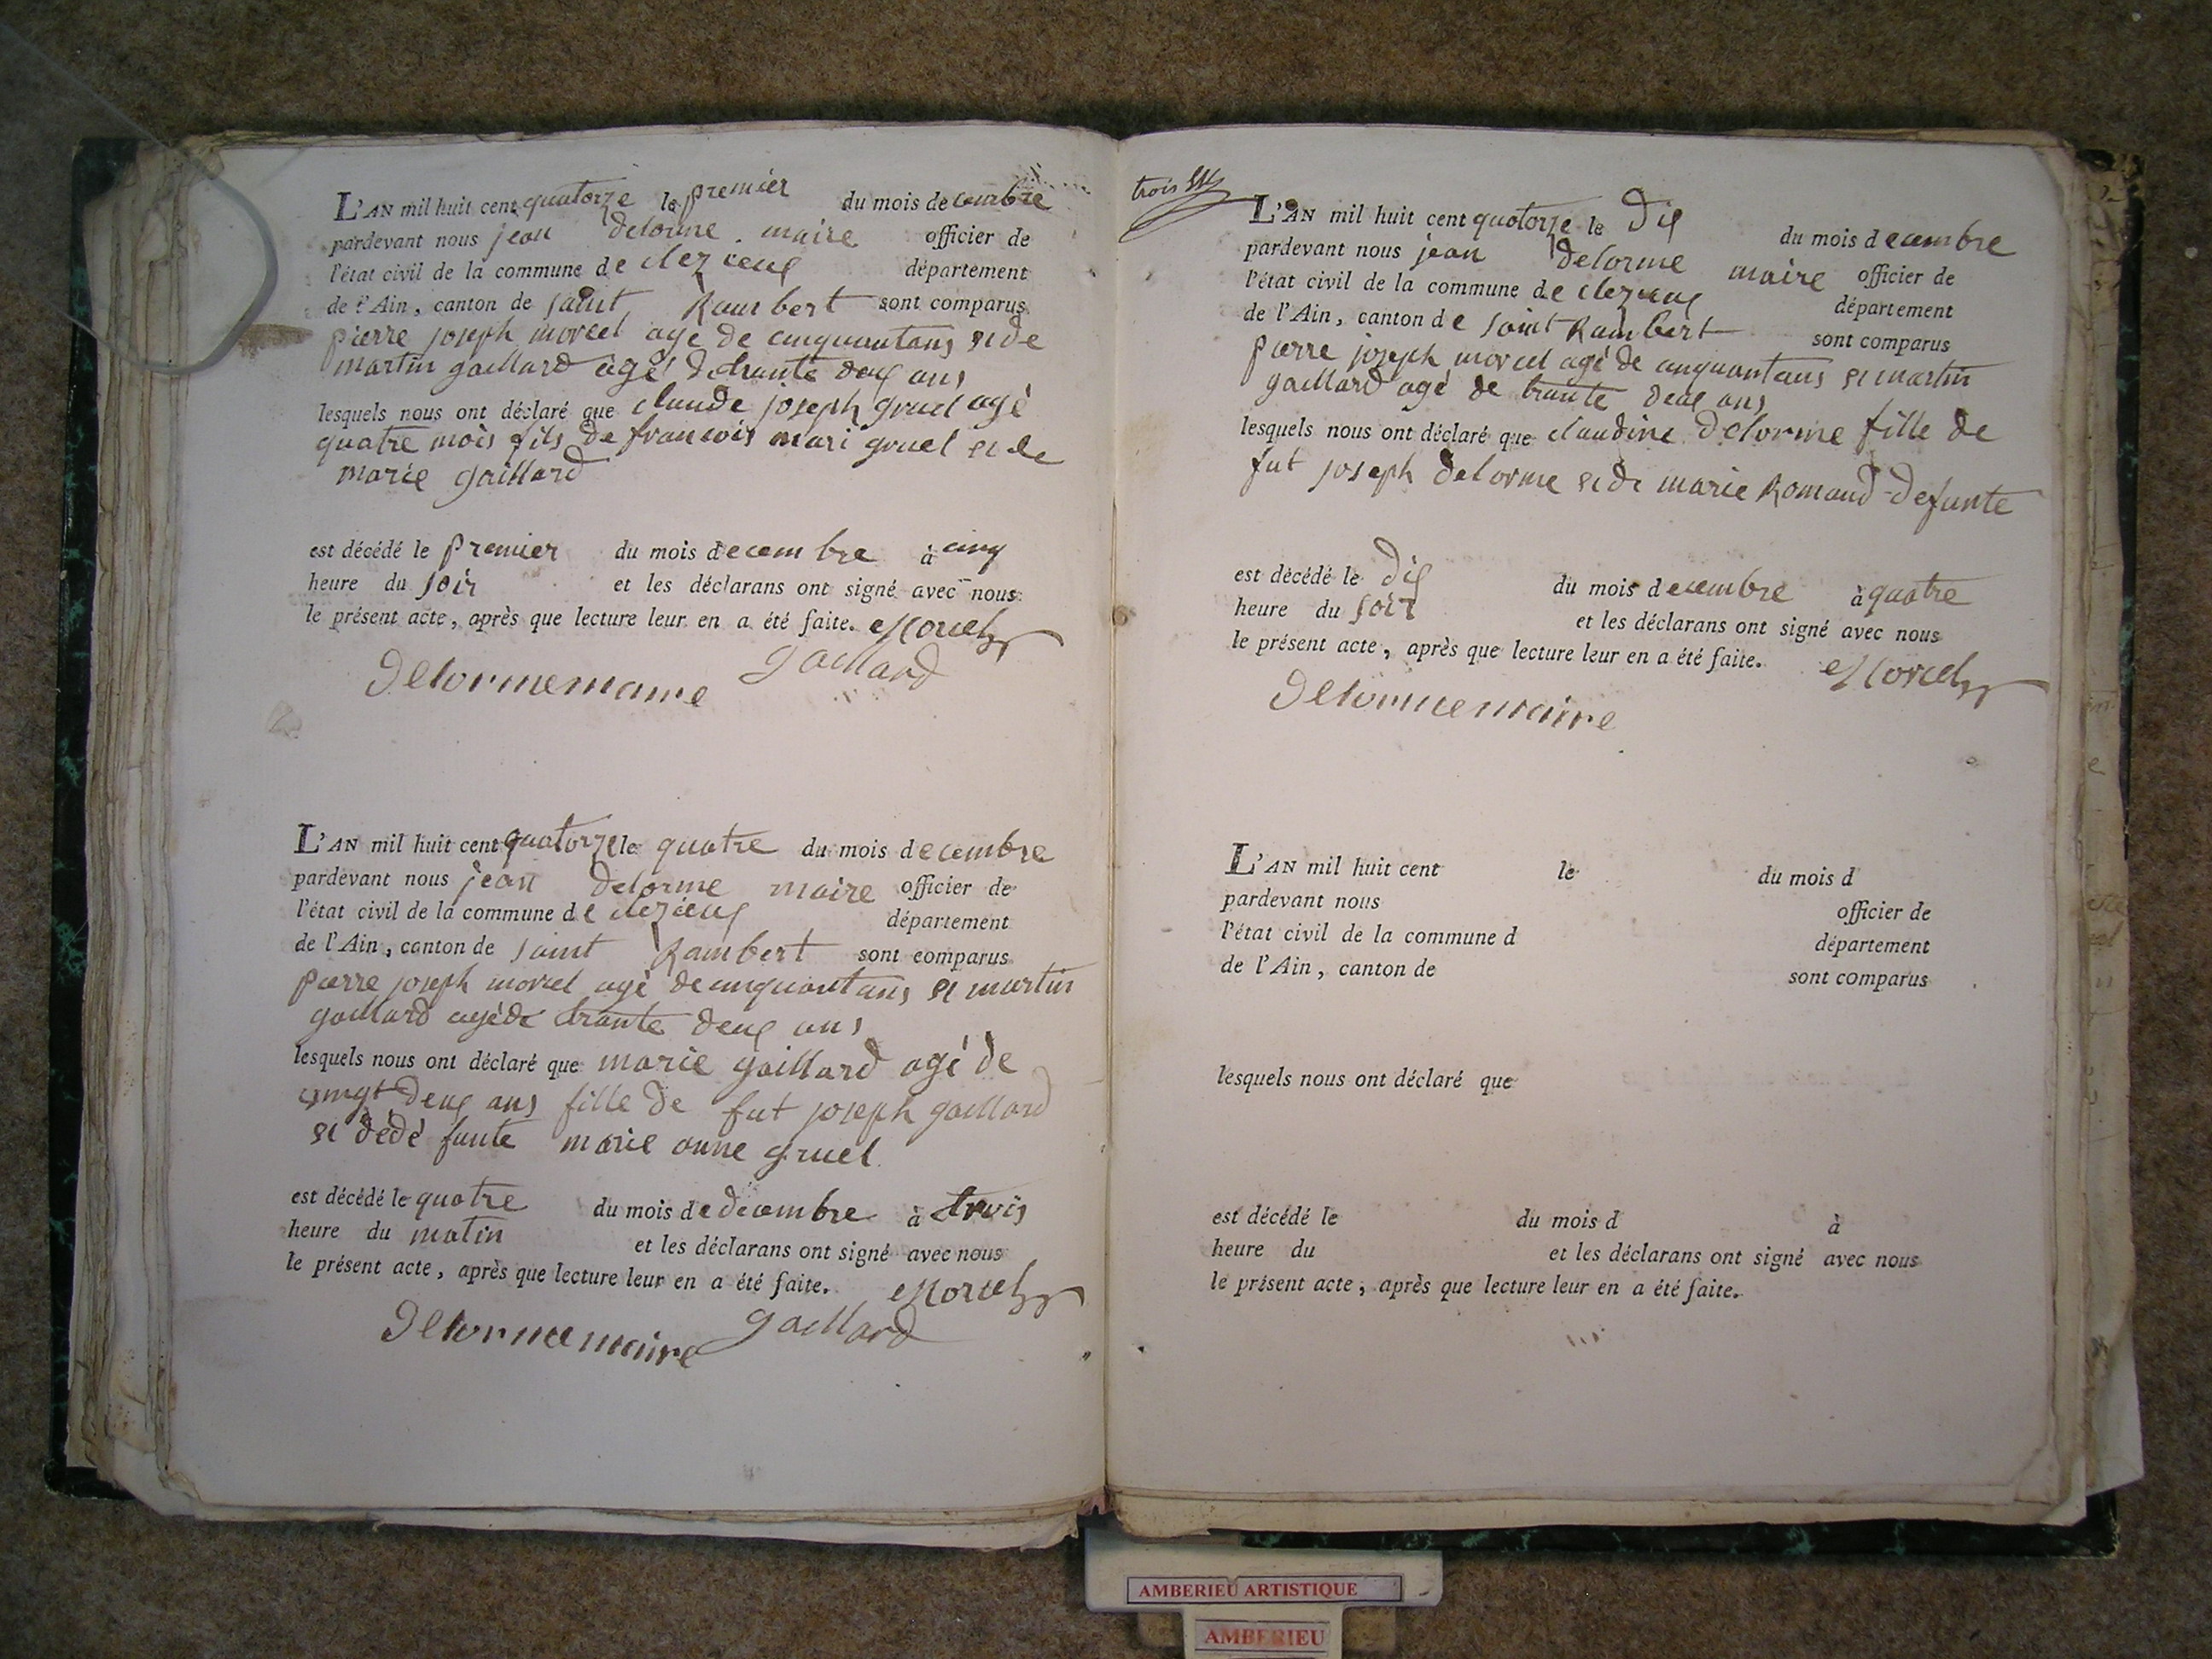 L'AN mil huit cent quatorze le premier du mois decembre
pardevant nous jean delorme maire officier de
l'état civil de la commune de clezieux département
de l'Ain, canton de saint Rambert sont comparus
pierre joseph morcel agé de cinquantans et de
martin gaillard agé de trante deux ans
lesquels nous ont déclaré que claude joseph gruel agé
quatre mois fils de francois mari gruel et de
marie gaillard
est décédé le premier du mois decembre à cinq
heure du soir et les déclarans ont signé avec nous
le présent acte, après que lecture leur en a été faite. Morcel
Delorme maire gaillard
L'AN mil huit cent quatorze le quatre du mois decembre
pardevant nous jean delorme maire officier de
l'état civil de la commune de clezieux département
de l'Ain, canton de saint Rambert sont comparus
pierre joseph morcel agé de cinquantans et martin
gaillard agé de trante deux ans
lesquels nous ont déclaré que marie gaillard agé de
vingt deux ans fille de fut joseph gaillard
et dedé funte marie anne gruel
est décédé le quatre du mois de decembre à trois
heure du matin et les déclarans ont signé avec nous
le présent acte, après que lecture leur en a été faite. Morcel
Delorme maire gaillard
trois
L'AN mil huit cent quatorze le Dix du mois decembre
pardevant nous jean delorme maire officier de
l'état civil de la commune de clezieux département
de l'Ain, canton de saint Rambert sont comparus
pierre joseph morcel agé de cinquantans et martin
gaillard agé de trante deux ans
lesquels nous ont déclaré que claudine delorme fille de
fut joseph delorme et de marie Romand defunte
est décédé le Dix du mois decembre à quatre
heure du soir et les déclarans ont signé avec nous
le présent acte, après que lecture leur en a été faite. Morcel
Delorme maire
L'AN mil huit cent le du mois d
pardevant nous officier de
l'état civil de la commune d département
de l'Ain, canton de sont comparus
lesquels nous ont déclaré que
est décédé le du mois d à
heure du et les déclarans ont signé avec nous
le présent acte, après que lecture leur en a été faite.
AMBERIEU ARTISTIQUE
AMBERIEU